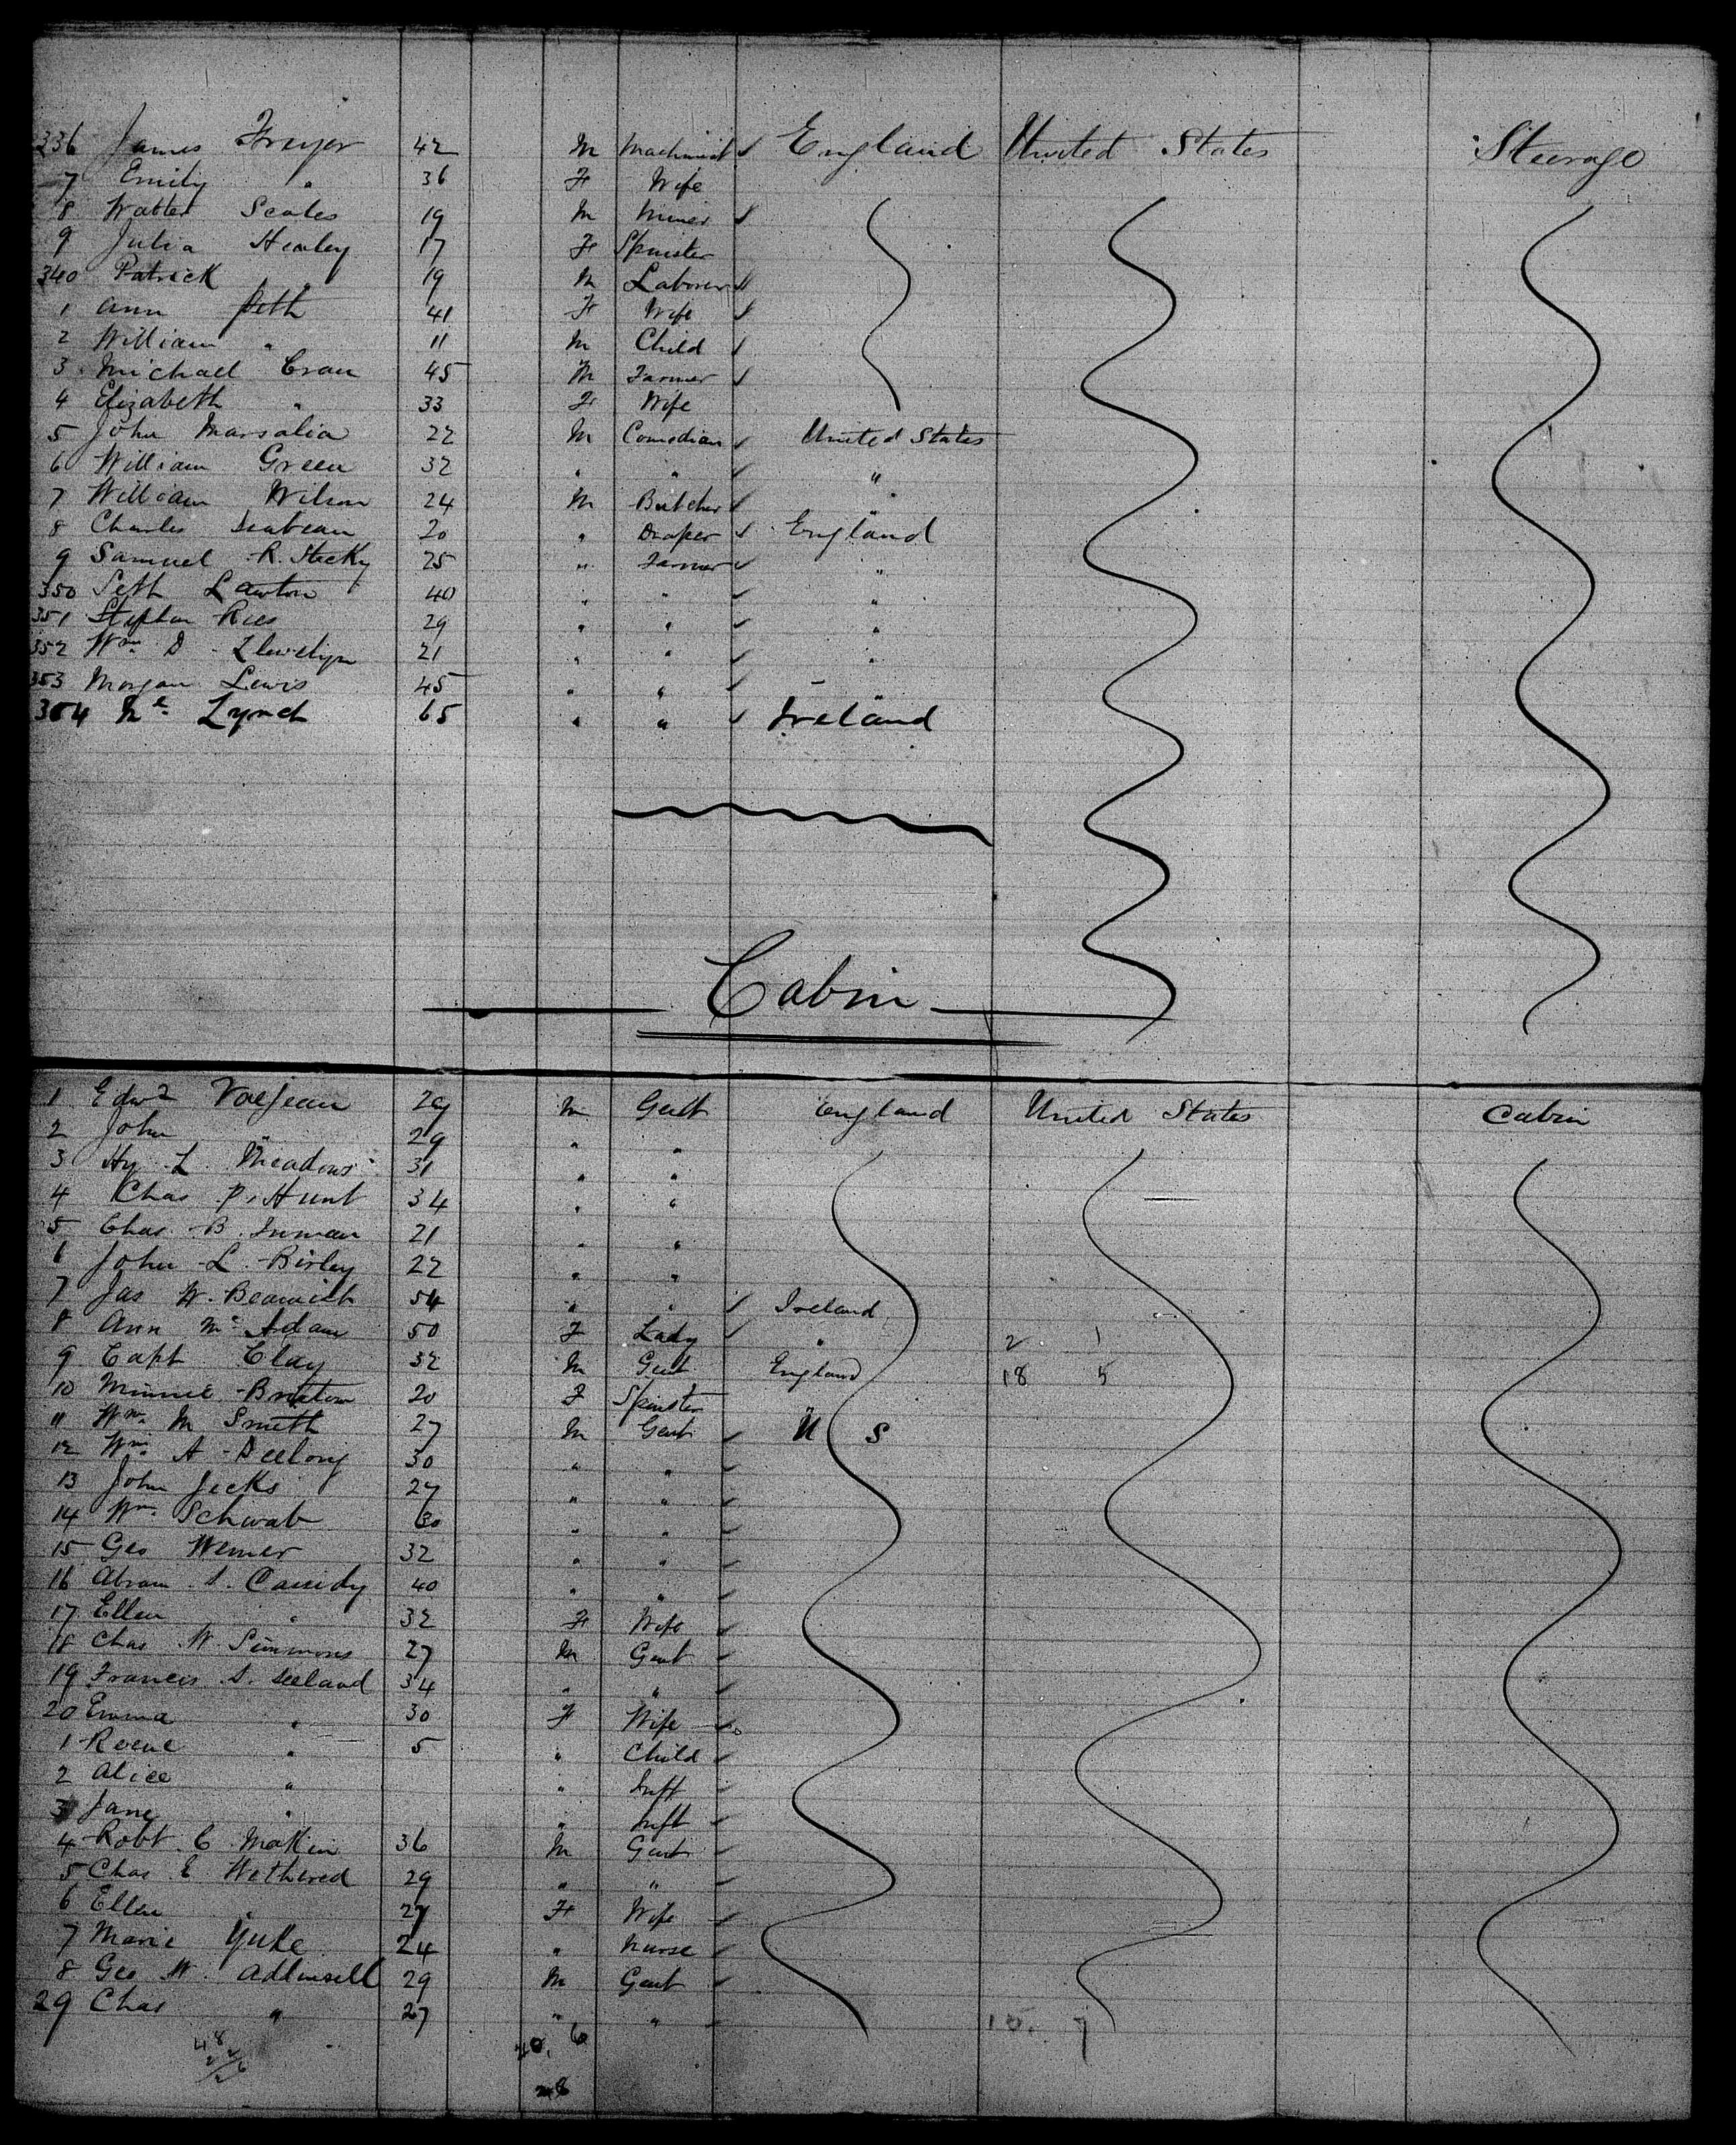 336 James Freyer 42 M Machinist ✓ England United States Steerage
7 Emily " 36 F Wife
8 Walter Scales 19 M Miner ✓
9 Julia Henley 17 F Spinster
340 Patrick " 19 M Laborer ✓
1 Ann Peth 41 F Wife ✓
2 William " 11 M Child ✓
3 Michael Cran 45 M Farmer ✓
4 Elizabeth " 33 F Wife
5 John Marsalia 22 M Comedian ✓ United States
6 William Green 32 " " ✓ "
7 William Wilson 24 M Butcher ✓ "
8 Charles 20 " Draper ✓ England
9 Samuel R. 25 " Farmer ✓ "
350 Seth Lawton 40 " " ✓ "
351 Stephen Rees 29 " " ✓ "
352 Wm D Llewelyn 21 " " ✓ "
353 Morgan Lewis 45 " " ✓ "
354 Lynch 65 " " ✓ Ireland
Cabin
1 Edwd Valjean 29 M Gent England United States Cabin
2 John " 29 " "
3 Hy L. Meadows 31 " "
4 Chas P. Hunt 34 " "
5 Chas. B. Inman 21 " "
6 John L. Birley 22 " "
7 Jas W. 54 " " ✓ Ireland
8 Ann Mc Adam 50 F Lady ✓ " 2 1
9 Capt Clay 32 M Gent England 18 5
10 Minnie Bristow 20 F Spinster
11 Wm M Smith 27 M Gent ✓ U S
12 Wm A Deelong 30 " " ✓
13 John Jecks 27 " " ✓
14 Wm Schwab 30 " " ✓
15 Geo Werner 32 " " ✓
16 Abram S. Cassidy 40 " "
17 Ellen " 32 F Wife ✓
18 Chas W Simmons 27 M Gent ✓
19 Francis S. Leland 34 " " ✓
20 Emma " 30 F Wife ✓
1 " 5 " Child ✓
2 Alice " " Inft ✓
3 Jane " " Inft ✓
4 Robt C Makin 36 M Gent ✓
5 Chas E Wethered 29 " " ✓
6 Ellen " 27 F Wife ✓
7 Marie Yuke 24 " Nurse ✓
8 Geo W. Adlinsell 29 M Gent ✓
29 Chas " 27 " " ✓